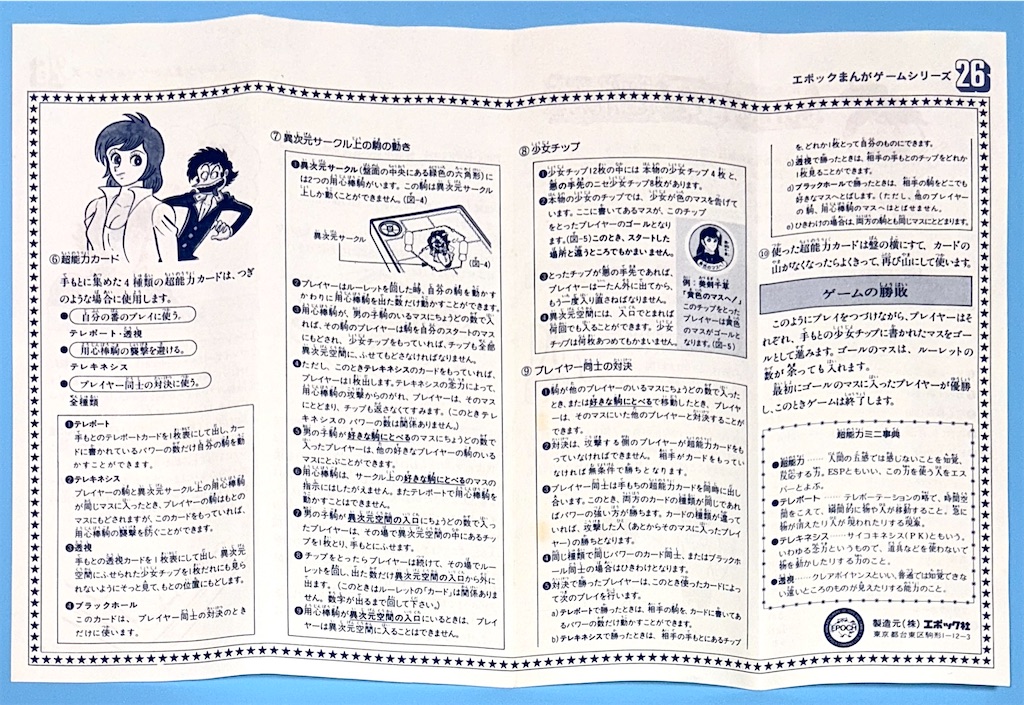 エポックまんがゲームシリーズ 26
⑥超能力カード
手もとに集めた4種類の超能力カードは、つぎ
のような場合に使用します。
●自分の番のプレイに使う。
テレポート・透視
●用心棒駒の襲撃を避ける。
テレキネシス
●プレイヤー同士の対決に使う。
全種類
❶テレポート
手もとのテレポートカードを1枚表にして出し、カー
ドに書かれているパワーの数だけ自分の駒を動
かすことができます。
❷テレキネシス
プレイヤーの駒と異次元サークル上の用心棒駒
が同じマスに入ったとき、プレイヤーの駒はもとの
マスにもどされますが、このカードをもっていれば、
用心棒駒の襲撃を防ぐことができます。
❸透視
手もとの透視カードを1枚表にして出し、異次元
空間にふせられた少女チップを1枚だれにも見ら
れないようにそっと見て、もとの位置にもどします。
❹ブラックホール
このカードは、プレイヤー同士の対決のとき
だけに使います。
⑦異次元サークル上の駒の動き
❶異次元サークル(盤面の中央にある緑色の六角形)に
は2つの用心棒駒がいます。この駒は異次元サークル
上しか動くことができません。(図-4)
異次元サークル
(図-4)
❷プレイヤーはルーレットを回した時、自分の駒を動かす
かわりに用心棒駒を出た数だけ動かすことができます。
❸用心棒駒が、男の子駒のいるマスにちょうどの数で入
れば、その駒のプレイヤーは駒を自分のスタートのマス
にもどされ、少女チップをもっていれば、チップも全部
異次元空間に、ふせてもどさなければなりません。
❹ただし、このときテレキネシスのカードをもっていれば、
プレイヤーは1枚出します。テレキネシスの念力によって、
用心棒駒の攻撃からのがれ、プレイヤーは、そのマス
にとどまり、チップも返さなくてすみます。(このときテレ
キネシスのパワーの数は関係ありません。)
❺男の子駒が好きな駒にとべるのマスにちょうどの数で
入ったプレイヤーは、他の好きなプレイヤーの駒のいる
マスにとぶことができます。
❻用心棒駒は、サークル上の好きな駒にとべるのマスの
指示にはしたがえません。またテレポートで用心棒駒を
動かすことはできません。
❼男の子駒が異次元空間の入口にちょうどの数で入っ
たプレイヤーは、その場で異次元空間の中にあるチッ
プを1枚とり、手もとにふせます。
❽チップをとったらプレイヤーは続けて、その場でルー
レットを回し、出た数だけ異次元空間の入口から外に
出ます。(このときはルーレットの「カード」は関係ありま
せん。数字が出るまで回して下さい。)
❾用心棒駒が異次元空間の入口にいるときは、プレイ
ヤーは異次元空間に入ることはできません。
⑧少女チップ
❶少女チップ12枚の中には本物の少女チップ4枚と、
悪の手先のニセ少女チップ8枚があります。
❷本物の少女のチップでは、少女が色のマスを告げて
います。ここに書いてあるマスが、このチップ
をとったプレイヤーのゴールとなり
ます。(図-5)このとき、スタートした
場所と違うところでもかまいません。
❸とったチップが悪の手先であれば、
プレイヤーは一たん外に出てから、
もう一度入り直さねばなりません。
❹異次元空間には、入口でとまれば
何回でも入ることができます。少女
チップは何枚あつめてもかまいません。
例：美剣千草
「黄色のマスへ!」
このチップをとった
プレイヤーは黄色
のマスがゴールと
なります。(図-5)
⑨プレイヤー同士の対決
❶駒が他のプレイヤーのいるマスにちょうどの数で入った
とき、または好きな駒にとべるで移動したとき、プレイヤ
ーは、そのマスにいた他のプレイヤーと対決することが
できます。
❷対決は、攻撃する側のプレイヤーが超能力カードをも
っていないとできません。相手がカードをもってい
なければ無条件で勝ちとなります。
❸プレイヤー同士は手もちの超能力カードを同時に出し
合います。このとき、両方のカードの種類が同じであれ
ばパワーの強い方が勝ちます。カードの種類が違って
いれば、攻撃した人(あとからそのマスに入ったプレイ
ヤー)の勝ちとなります。
❹同じ種類で同じパワーのカード同士、またはブラックホ
ール同士の場合はひきわけとなります。
❺対決で勝ったプレイヤーは、このとき使ったカードによ
って次のプレイを行います。
a)テレポートで勝ったときは、相手の駒を、カードに書いてあ
るパワーの数だけ動かすことができます。
b)テレキネシスで勝ったときは、相手の手もとにあるチップ
を、どれか1枚とって自分のものにできます。
c)透視で勝ったときは、相手の手もとのチップをどれか
1枚見ることができます。
d)ブラックホールで勝ったときは、相手の駒をどこでも
好きなマスへとばします。(ただし、他のプレイヤー
の駒、用心棒駒のマスへはとばせません。
e)ひきわけの場合は、両方の駒とも同じマスにとどまります。
⑩使った超能力カードは盤の横にすて、カードの
山がなくなったらよくきって、再び山にして使います。
ゲームの勝敗
このようにプレイをつづけながら、プレイヤーはそ
れぞれ、手もとの少女チップに書かれたマスをゴー
ルとして進みます。ゴールのマスは、ルーレットの
数が余っても入れます。
最初にゴールのマスに入ったプレイヤーが優勝
し、このときゲームは終了します。
超能力ミニ事典
●超能力……人間の五感では感じないことを知覚、
反応する力。ESPともいい。この力を使う人をエス
パーとよぶ。
●テレポート……テレポーテーションの略で、時間空
間をこえて、瞬間的に物や人が移動すること。急に
物が消えたり人が現われたりする現象。
●テレキネシス……サイコキネシス(PK)ともいう。
いわゆる念力というもので、道具などを使わないで
物を動かしたりする力のこと。
●透視……クレアボイヤンスといい、普通では知覚できな
い遠いところのものが見えたりする能力のこと。
EPOCH
製造元(株)エポック社
東京都台東区駒形1-12-3